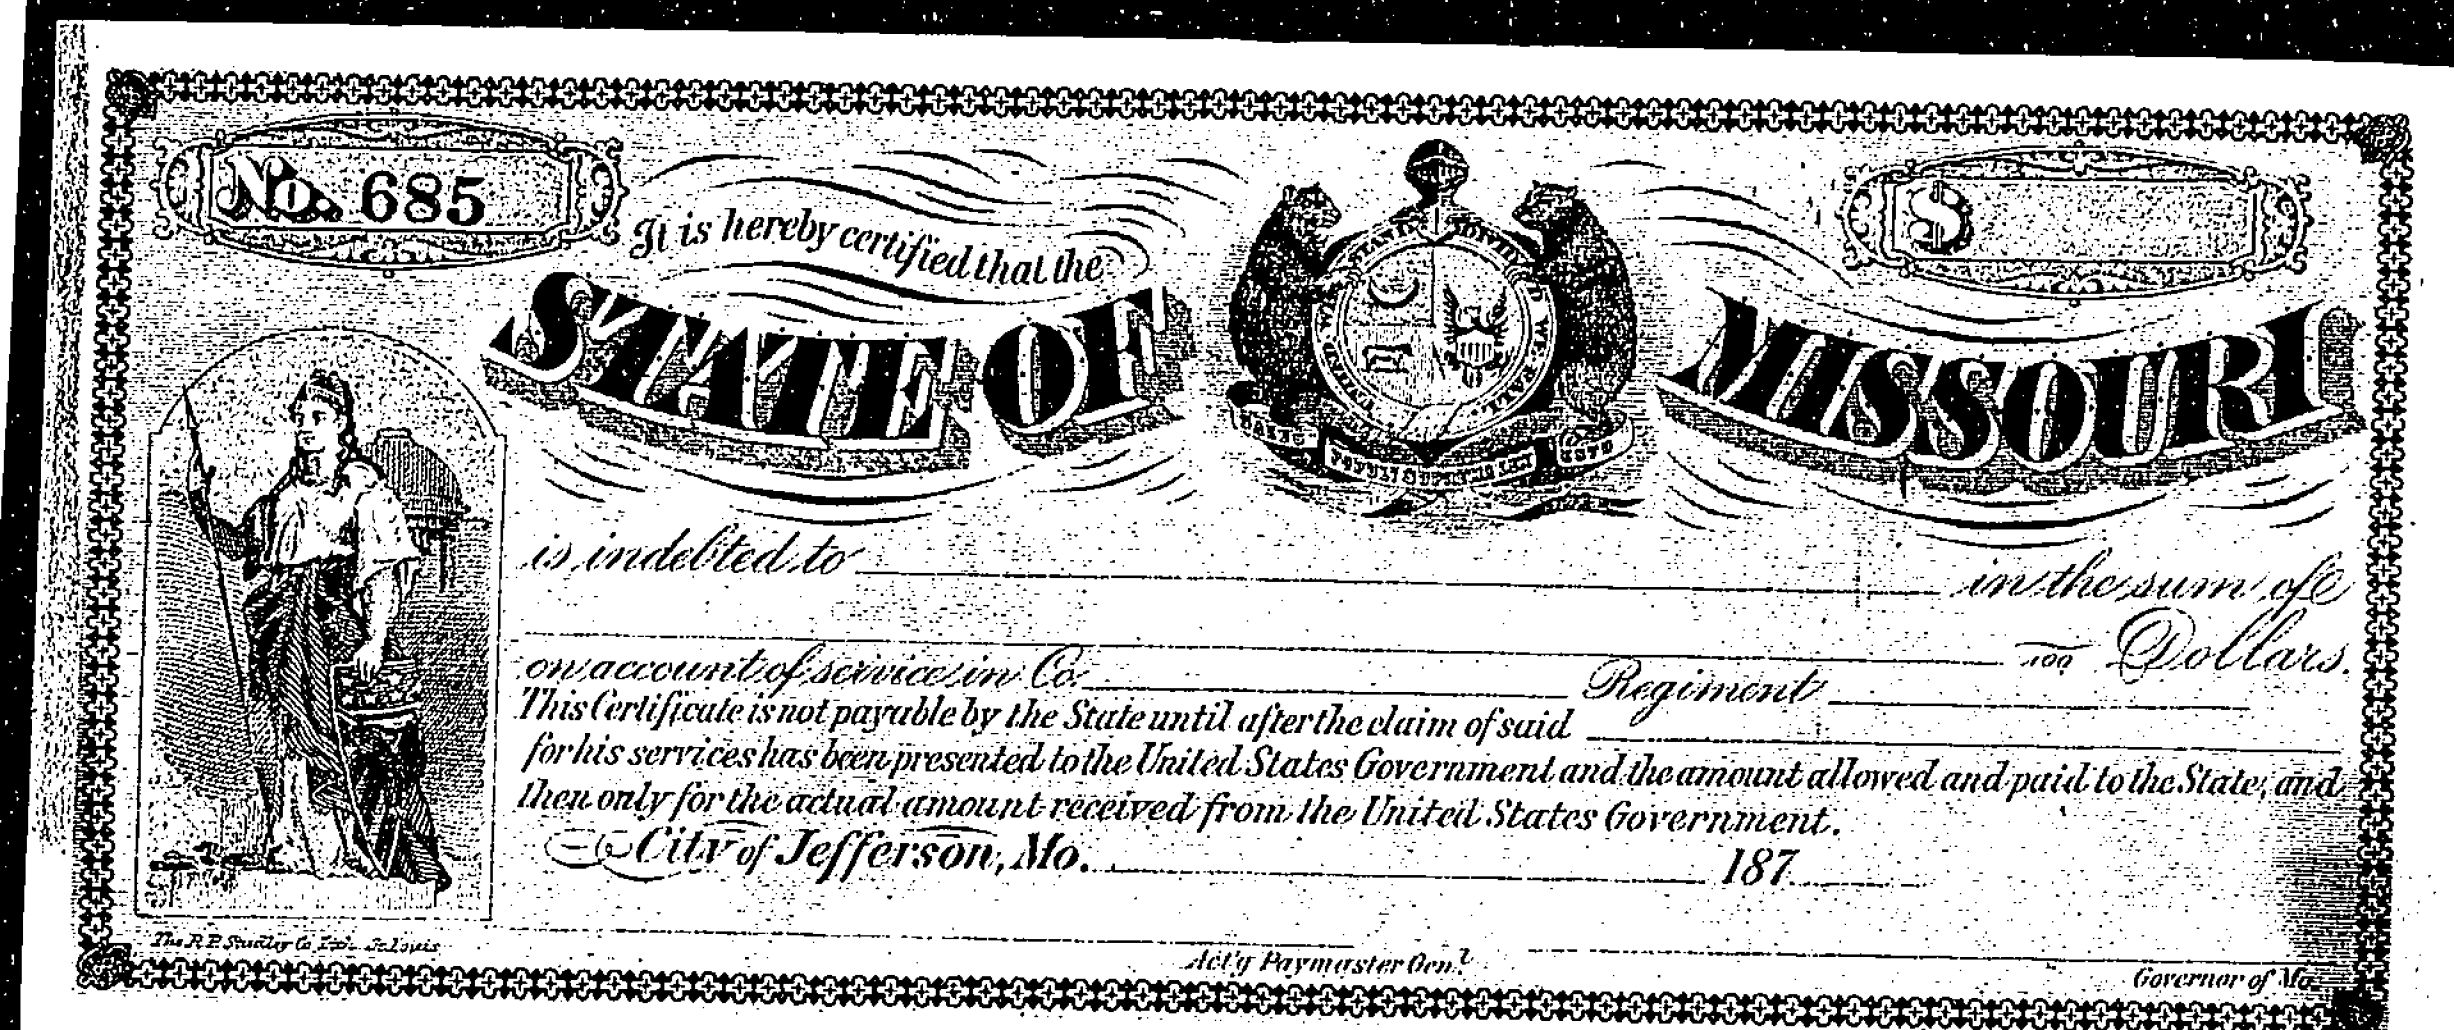 No. 685
$
It is hereby certified that the
STATE OF MISSOURI
UNITED WE STAND DIVIDED WE FALL
SALUS POPULI SUPREMA LEX ESTO
is indebted to in the sum of
100 Dollars.
on account of service in Co. Regiment
This Certificate is not payable by the State until after the claim of said
for his services has been presented to the United States Government and the amount allowed and paid to the State; and
then only for the actual amount received from the United States Government.
City of Jefferson, Mo. 187
The R. P. Studley Co. Lith. St. Louis
Act'g Paymaster Gen.l
Governor of Mo.